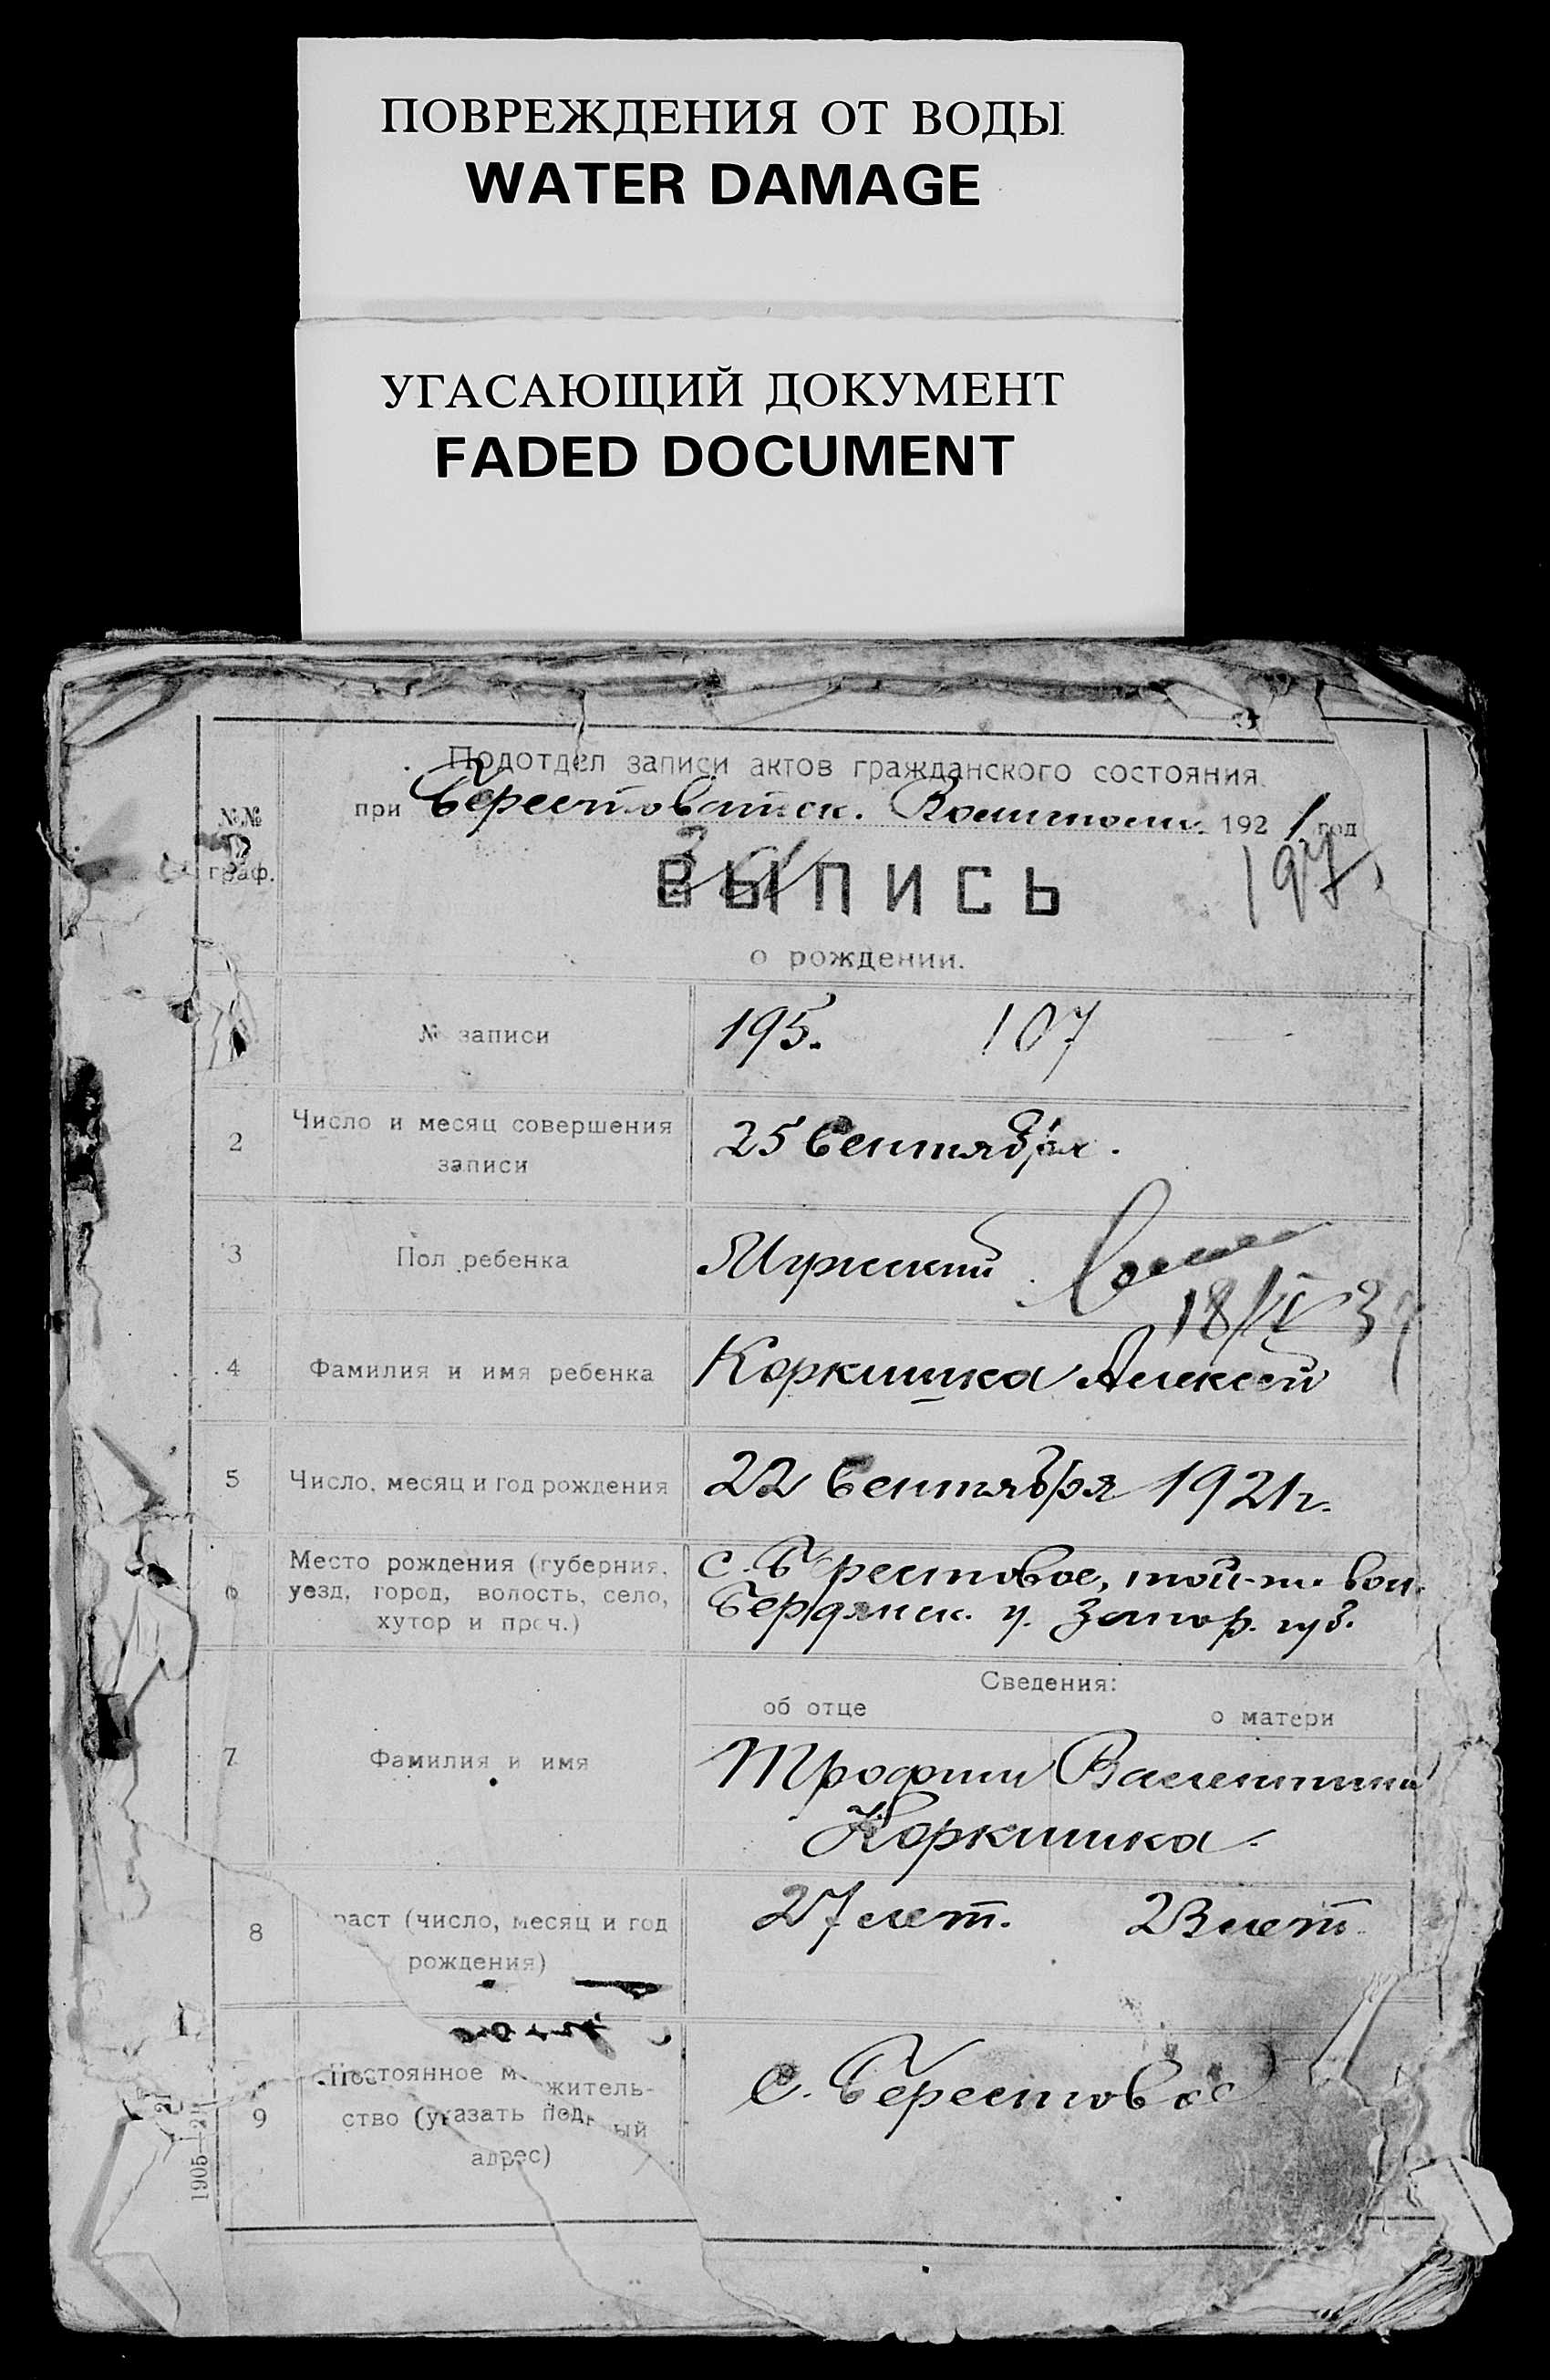 ПОВРЕЖДЕНИЯ ОТ ВОДЫ
WATER DAMAGE
УГАСАЮЩИЙ ДОКУМЕНТ
FADED DOCUMENT
Подотдел записи актов гражданского состояния
при Берестоватск. Волисполк. 1921 год
№№
граф.
ВЫПИСЬ
197
о рождении.
№ записи 195. 107
2 Число и месяц совершения
записи
25 Сентября.
3 Пол ребенка Мужский
18/IV 37
4 Фамилия и имя ребенка Коркишка Алексей
5 Число, месяц и год рождения 22 Сентября 1921 г.
6 Место рождения (губерния,
уезд, город, волость, село,
хутор и проч.)
С. Берестовое, той-ж. вол.
Бердянск. у. Запор. губ.
Сведения:
об отце о матери
7 Фамилия и имя Трофим Валентина
Коркишка.
8 раст (число, месяц и год
рождения)
27 лет. 23 лет.
9 Постоянное м житель-
ство (указать под ый
адрес)
С. Берестовое
1905—21